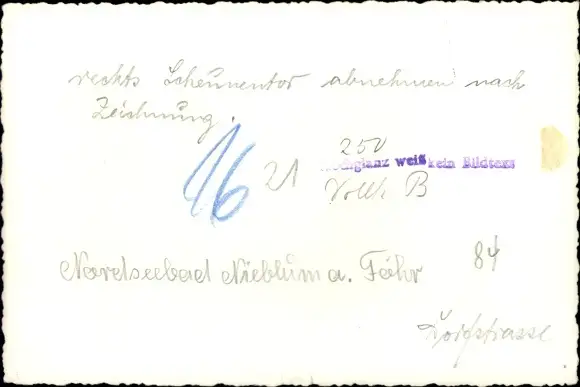 rechts Scheunentor abnehmen nach
Zeichnung.
250
16 21 hochglanz weiß kein Bildtext
Vollk. B
Nordseebad Nieblum a. Föhr 84
Dorfstrasse